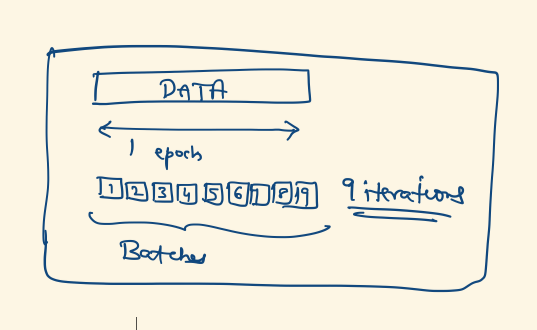 DATA
1 epoch
1 2 3 4 5 6 7 8 9 9 iterations
Batches